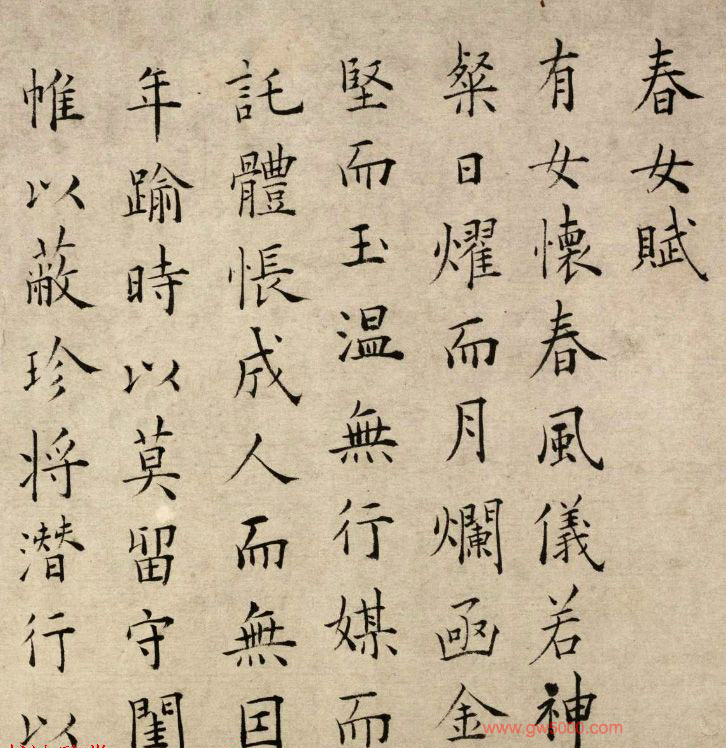 春女賦
有女懷春風儀若神
粲日燿而月爛凾金
堅而玉温無行媒而
託體悵成人而無囙
年踰時以莫留守閨
帷以蔽珍将潜行以
www.gw5000.com